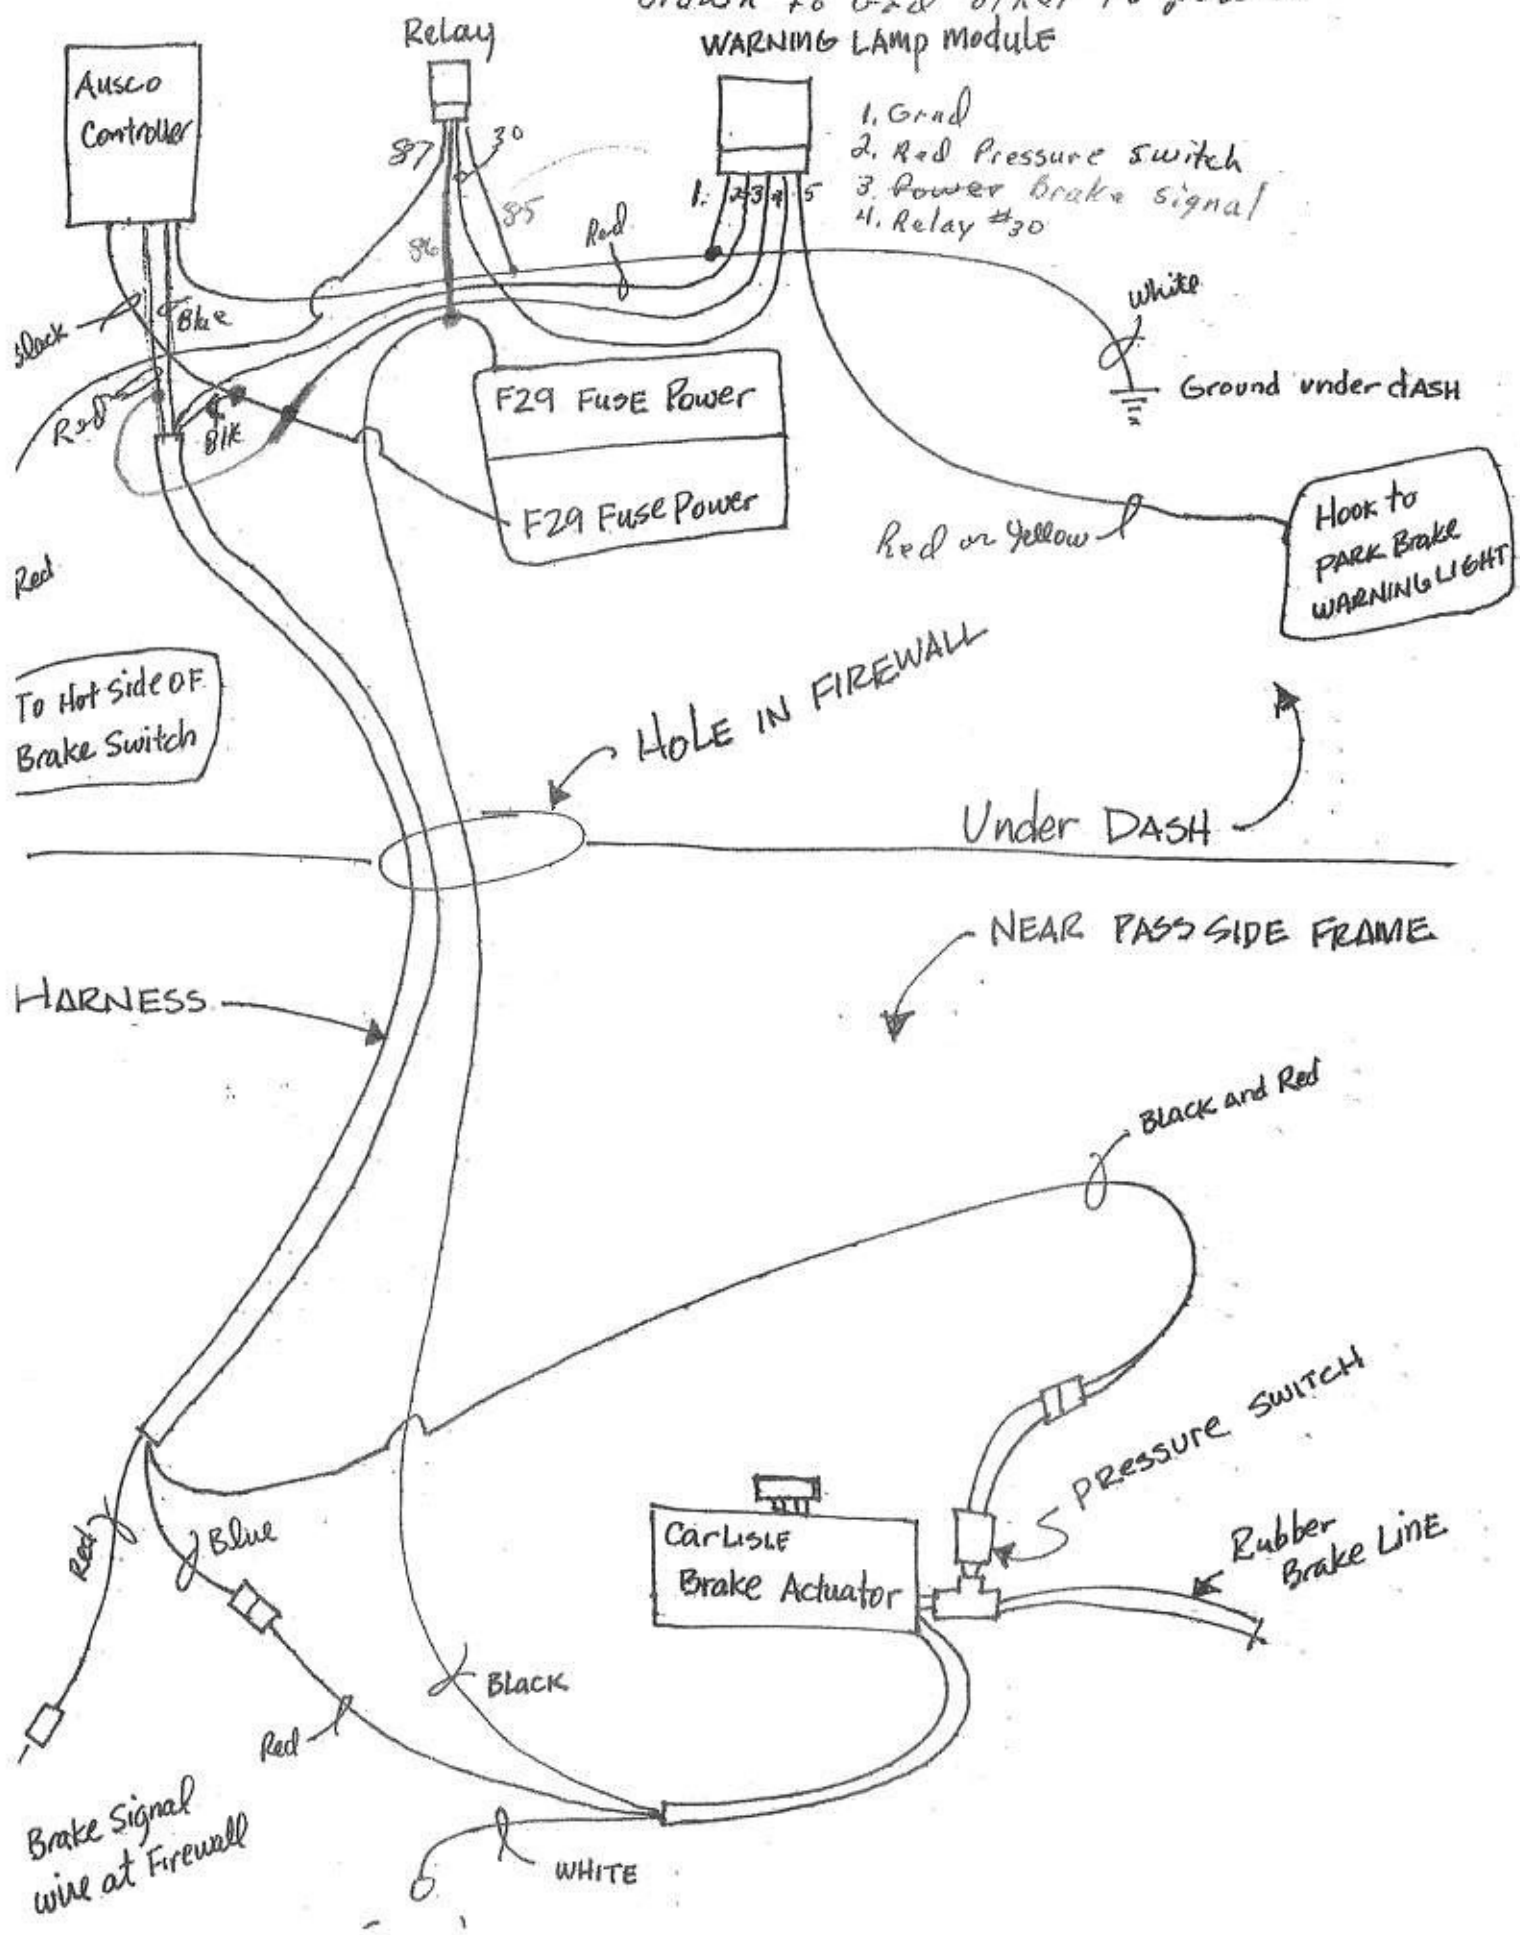 Relay
WARNING LAMP MODULE
Ausco
Controller
1. Grnd
2. Red Pressure Switch
3. Power Brake Signal
4. Relay #30
87
30
85
86
1. 2 3 4 5
Red
White
Black
Blue
Red
Blk
F29 FUSE Power
F29 Fuse Power
Ground under dASH
Red or Yellow
Hook to
PARK Brake
WARNING LIGHT
Red
To Hot Side OF
Brake Switch
HOLE IN FIREWALL
Under DASH
NEAR PASS SIDE FRAME
HARNESS
BLACK and Red
PRESSURE SWITCH
CARLISLE
Brake Actuator
Rubber
Brake LINE
Red
Blue
BLACK
Red
WHITE
Brake Signal
wire at Firewall